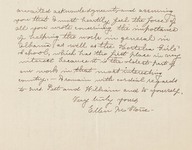 omitted acknowledgment, and assuring
you that I most heartily feel the force of
all you wrote concerning the importance
of helping the work in general in
Albania, as well as the Kortcha Girls'
School, which has the first place in my
interest because it is the oldest part of
our work in that most interesting
country. I remain with cordial regards
to Mrs. and William and to yourself,
Very truly yours,
Ellen M. Stone.